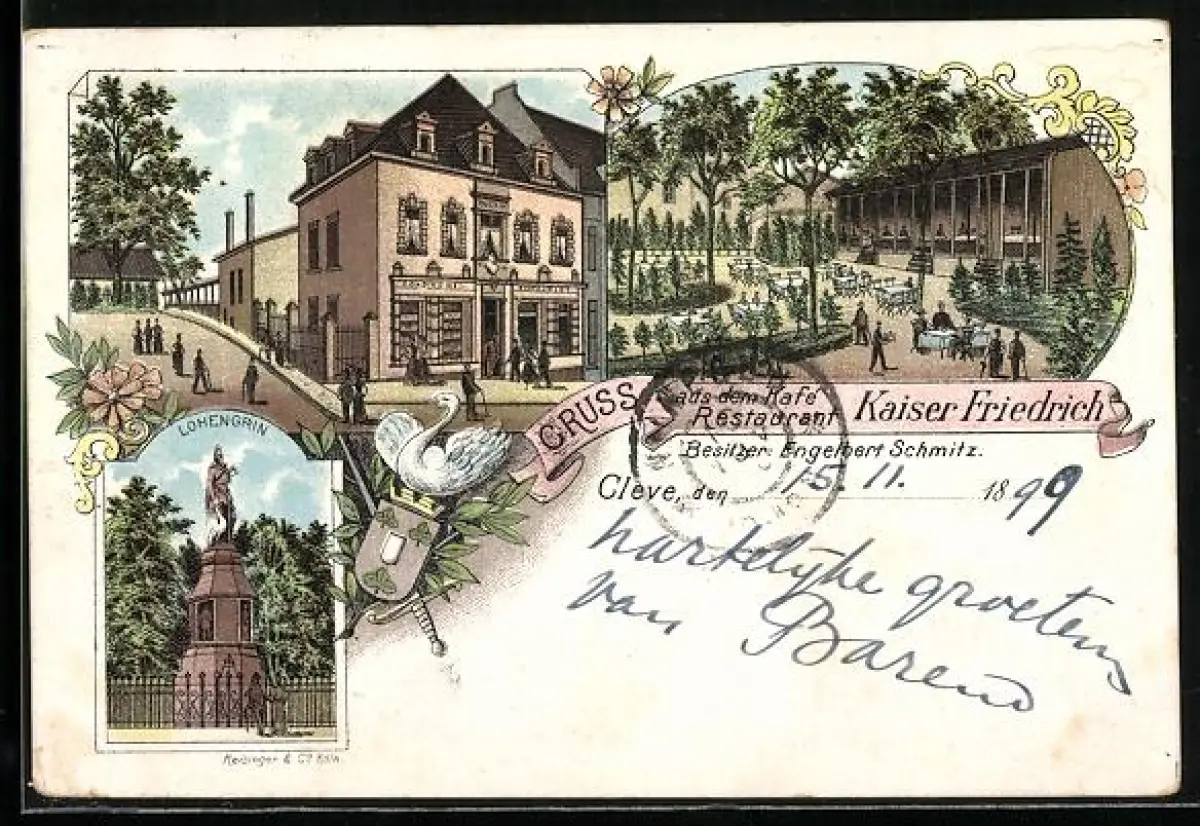 LOHENGRIN
GRUSS aus dem Kafé
Restaurant Kaiser Friedrich
Besitzer: Engelbert Schmitz.
Cleve, den 15. 11. 1899
hartelijke groeten
van Barend
& Co. Köln